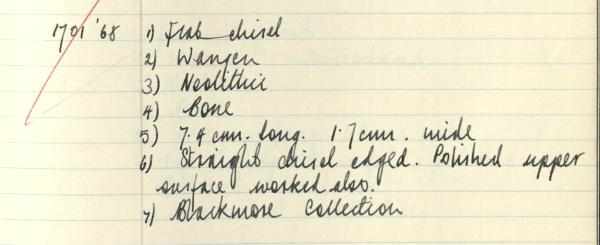 1701 '68 1) Flat chisel
2) Wangen
3) Neolithic
4) Bone
5) 7.4 cm. long. 1.7 cm. wide
6) Straight chisel edged. Polished upper
surface worked also.
7) Blackmore Collection